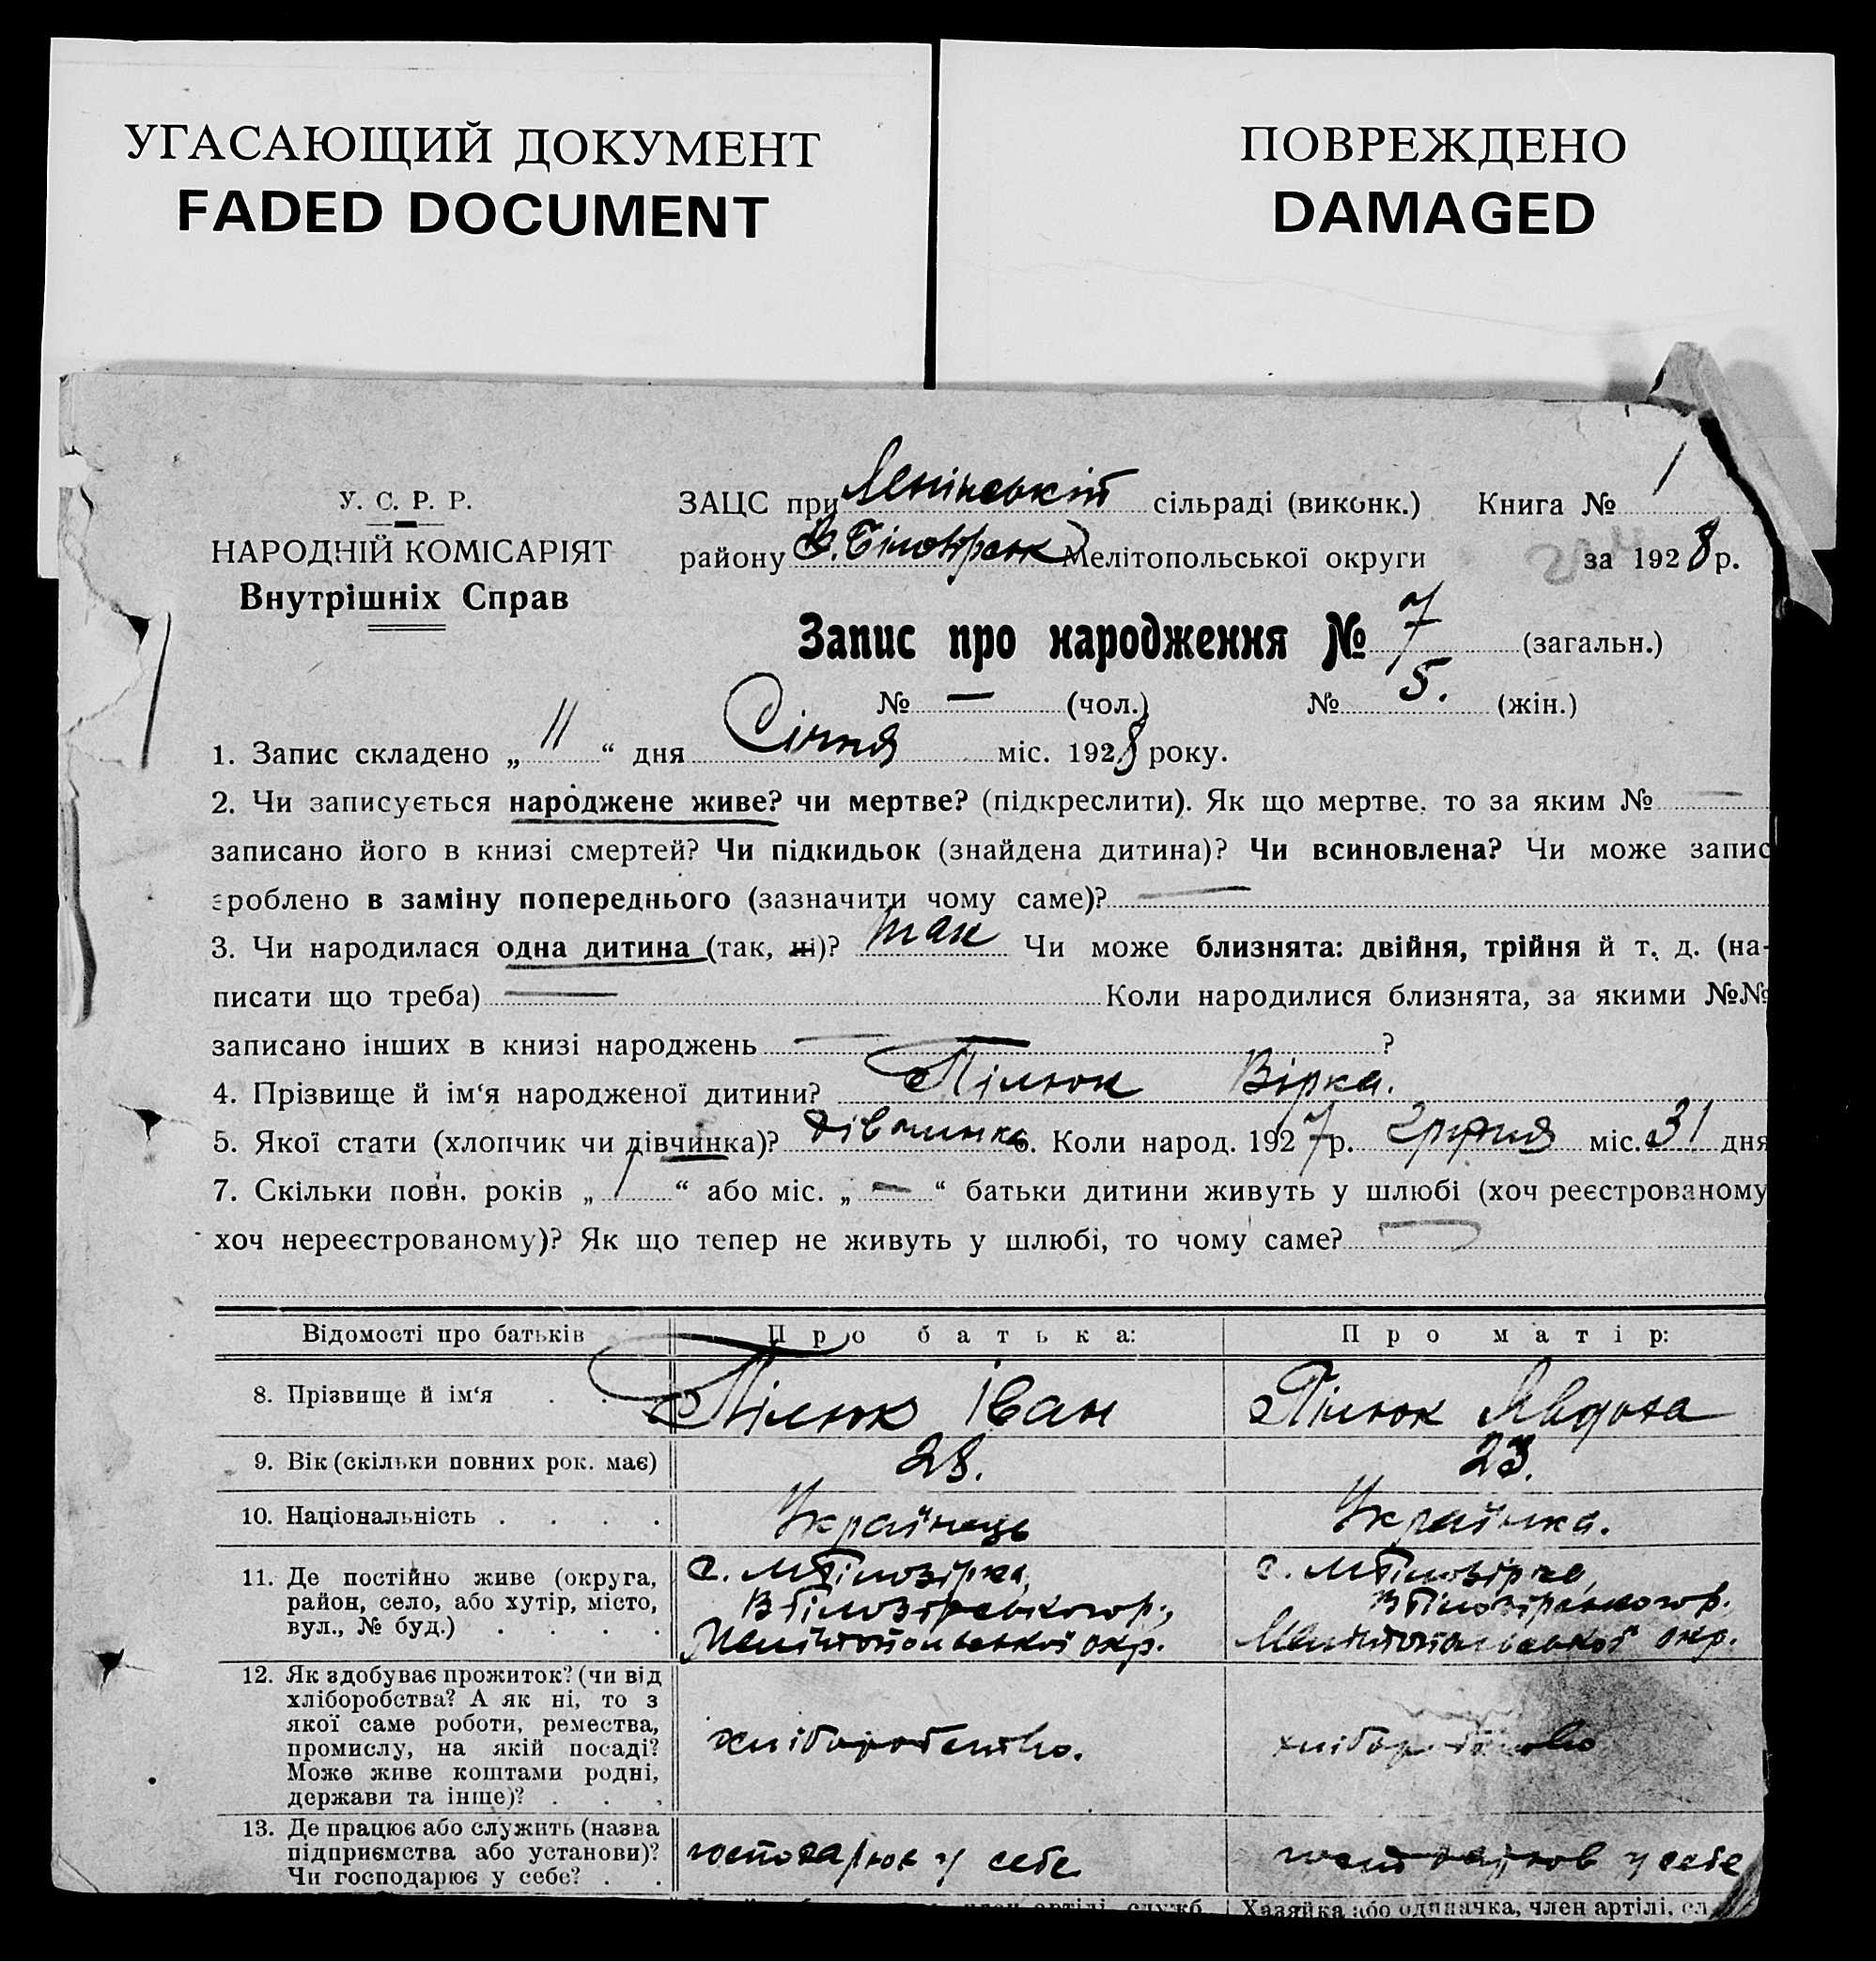 УГАСАЮЩИЙ ДОКУМЕНТ
FADED DOCUMENT
ПОВРЕЖДЕНО
DAMAGED
У. С. Р. Р.
НАРОДНІЙ КОМІСАРІЯТ
Внутрішніх Справ
ЗАЦС при Ленінській сільраді (виконк.) Книга № 1
району В. Білозірськ Мелітопольської округи за 1928 р.
Запис про народження № 7 (загальн.)
№ — (чол.) № 5. (жін.)
1. Запис складено „ 11 “ дня Січня міс. 1928 року.
2. Чи записується народжене живе? чи мертве? (підкреслити). Як що мертве, то за яким № —
записано його в книзі смертей? Чи підкидьок (знайдена дитина)? Чи всиновлена? Чи може запис
зроблено в заміну попереднього (зазначити чому саме)? —
3. Чи народилася одна дитина (так, ні)? так Чи може близнята: двійня, трійня й т. д. (на-
писати що треба) — Коли народилися близнята, за якими №№
записано інших в книзі народжень — ?
4. Прізвище й ім‘я народженої дитини? Пілюк Вірка.
5. Якої стати (хлопчик чи дівчинка)? Дівчинка. Коли народ. 1927 р. Грудня міс. 31 дня
7. Скільки повн. років „ 1 “ або міс. „ — “ батьки дитини живуть у шлюбі (хоч реєстрованому
хоч нереєстрованому)? Як що тепер не живуть у шлюбі, то чому саме? —
Відомості про батьків Про батька: Про матір:
8. Прізвище й ім‘я Пілюк Іван Пілюк Явдоха
9. Вік (скільки повних рок. має) 28. 23.
10. Національність Українець Українка.
11. Де постійно живе (округа, район, село, або хутір, місто, вул., № буд.)
с. МБілозірка,
ВБілозірського р.,
Мелітопольської окр.
с. МБілозірка,
ВБілозірського р.
Мелітопольської окр.
12. Як здобуває прожиток? (чи від
хліборобства? А як ні, то з
якої саме роботи, ремества,
промислу, на якій посаді?
Може живе коштами родні,
держави та інше)?
хліборобство.
хліборобство
13. Де працює або служить (назва
підприємства або установи)?
Чи господарює у себе?
господарює у себе
господарює у себе
член артілі, служб. Хазяйка або одиначка, член артілі, сл